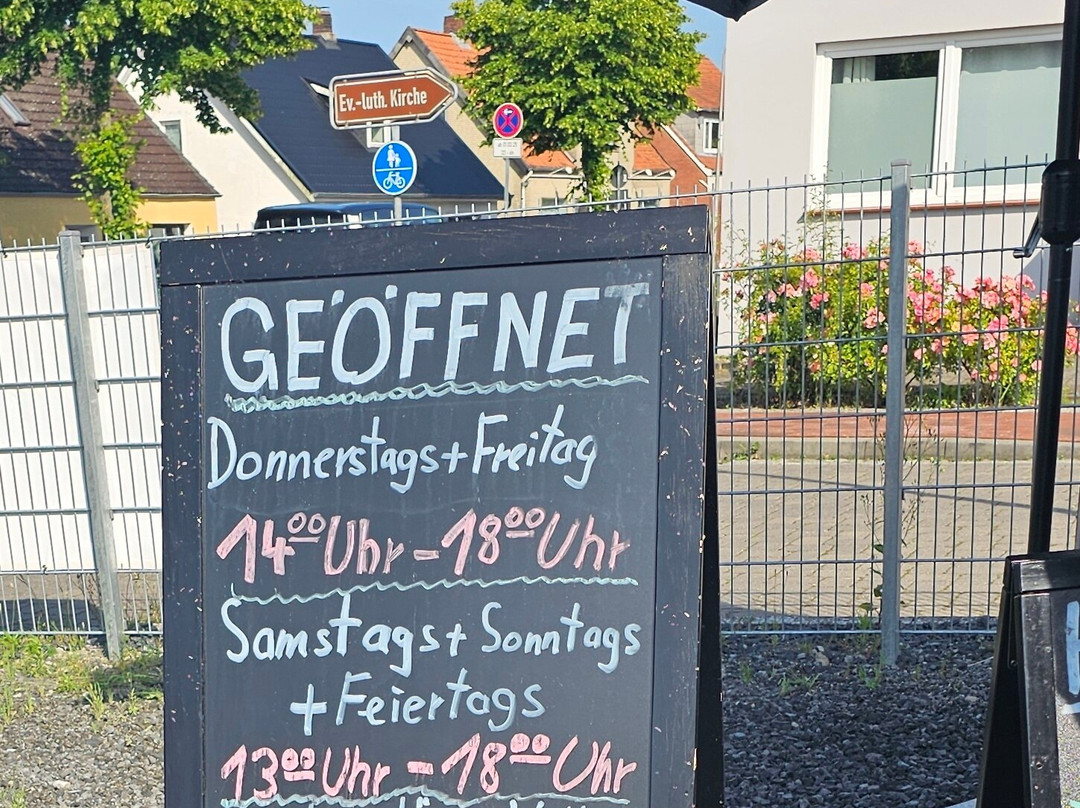 Ev.-luth. Kirche
GEÖFFNET
Donnerstags+Freitag
14⁰⁰Uhr-18⁰⁰Uhr
Samstags+Sonntags
+Feiertags
13⁰⁰Uhr-18⁰⁰Uhr